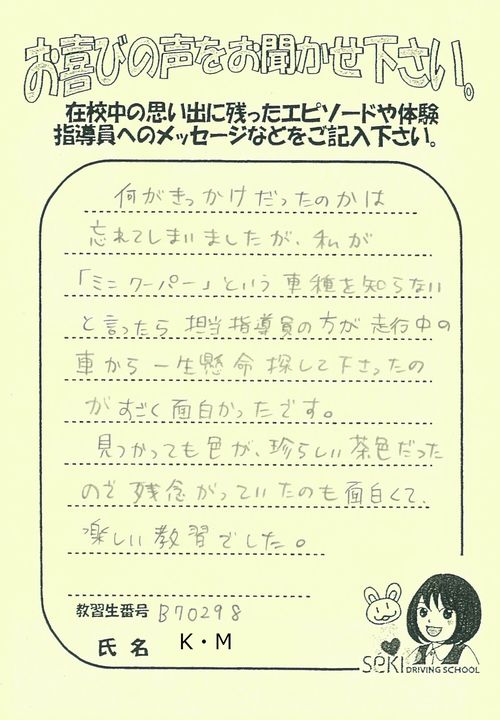 お喜びの声をお聞かせ下さい。
在校中の思い出に残ったエピソードや体験
指導員へのメッセージなどをご記入下さい。
何がきっかけだったのかは
忘れてしまいましたが、私が
「ミニクーパー」という車種を知らない
と言ったら担当指導員の方が走行中の
車から一生懸命探して下さったの
がすごく面白かったです。
見つかっても色が、珍らしい茶色だった
ので残念がっていたのも面白くて、
楽しい教習でした。
教習生番号 B70298
氏名 K・M
SéKI DRIVING SCHOOL